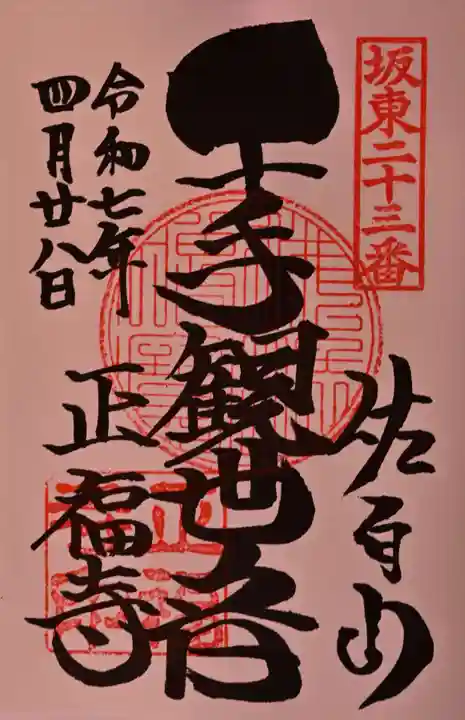 坂東二十三番
佐白山
千手観世音
令和七年
四月廿八日
正福寺